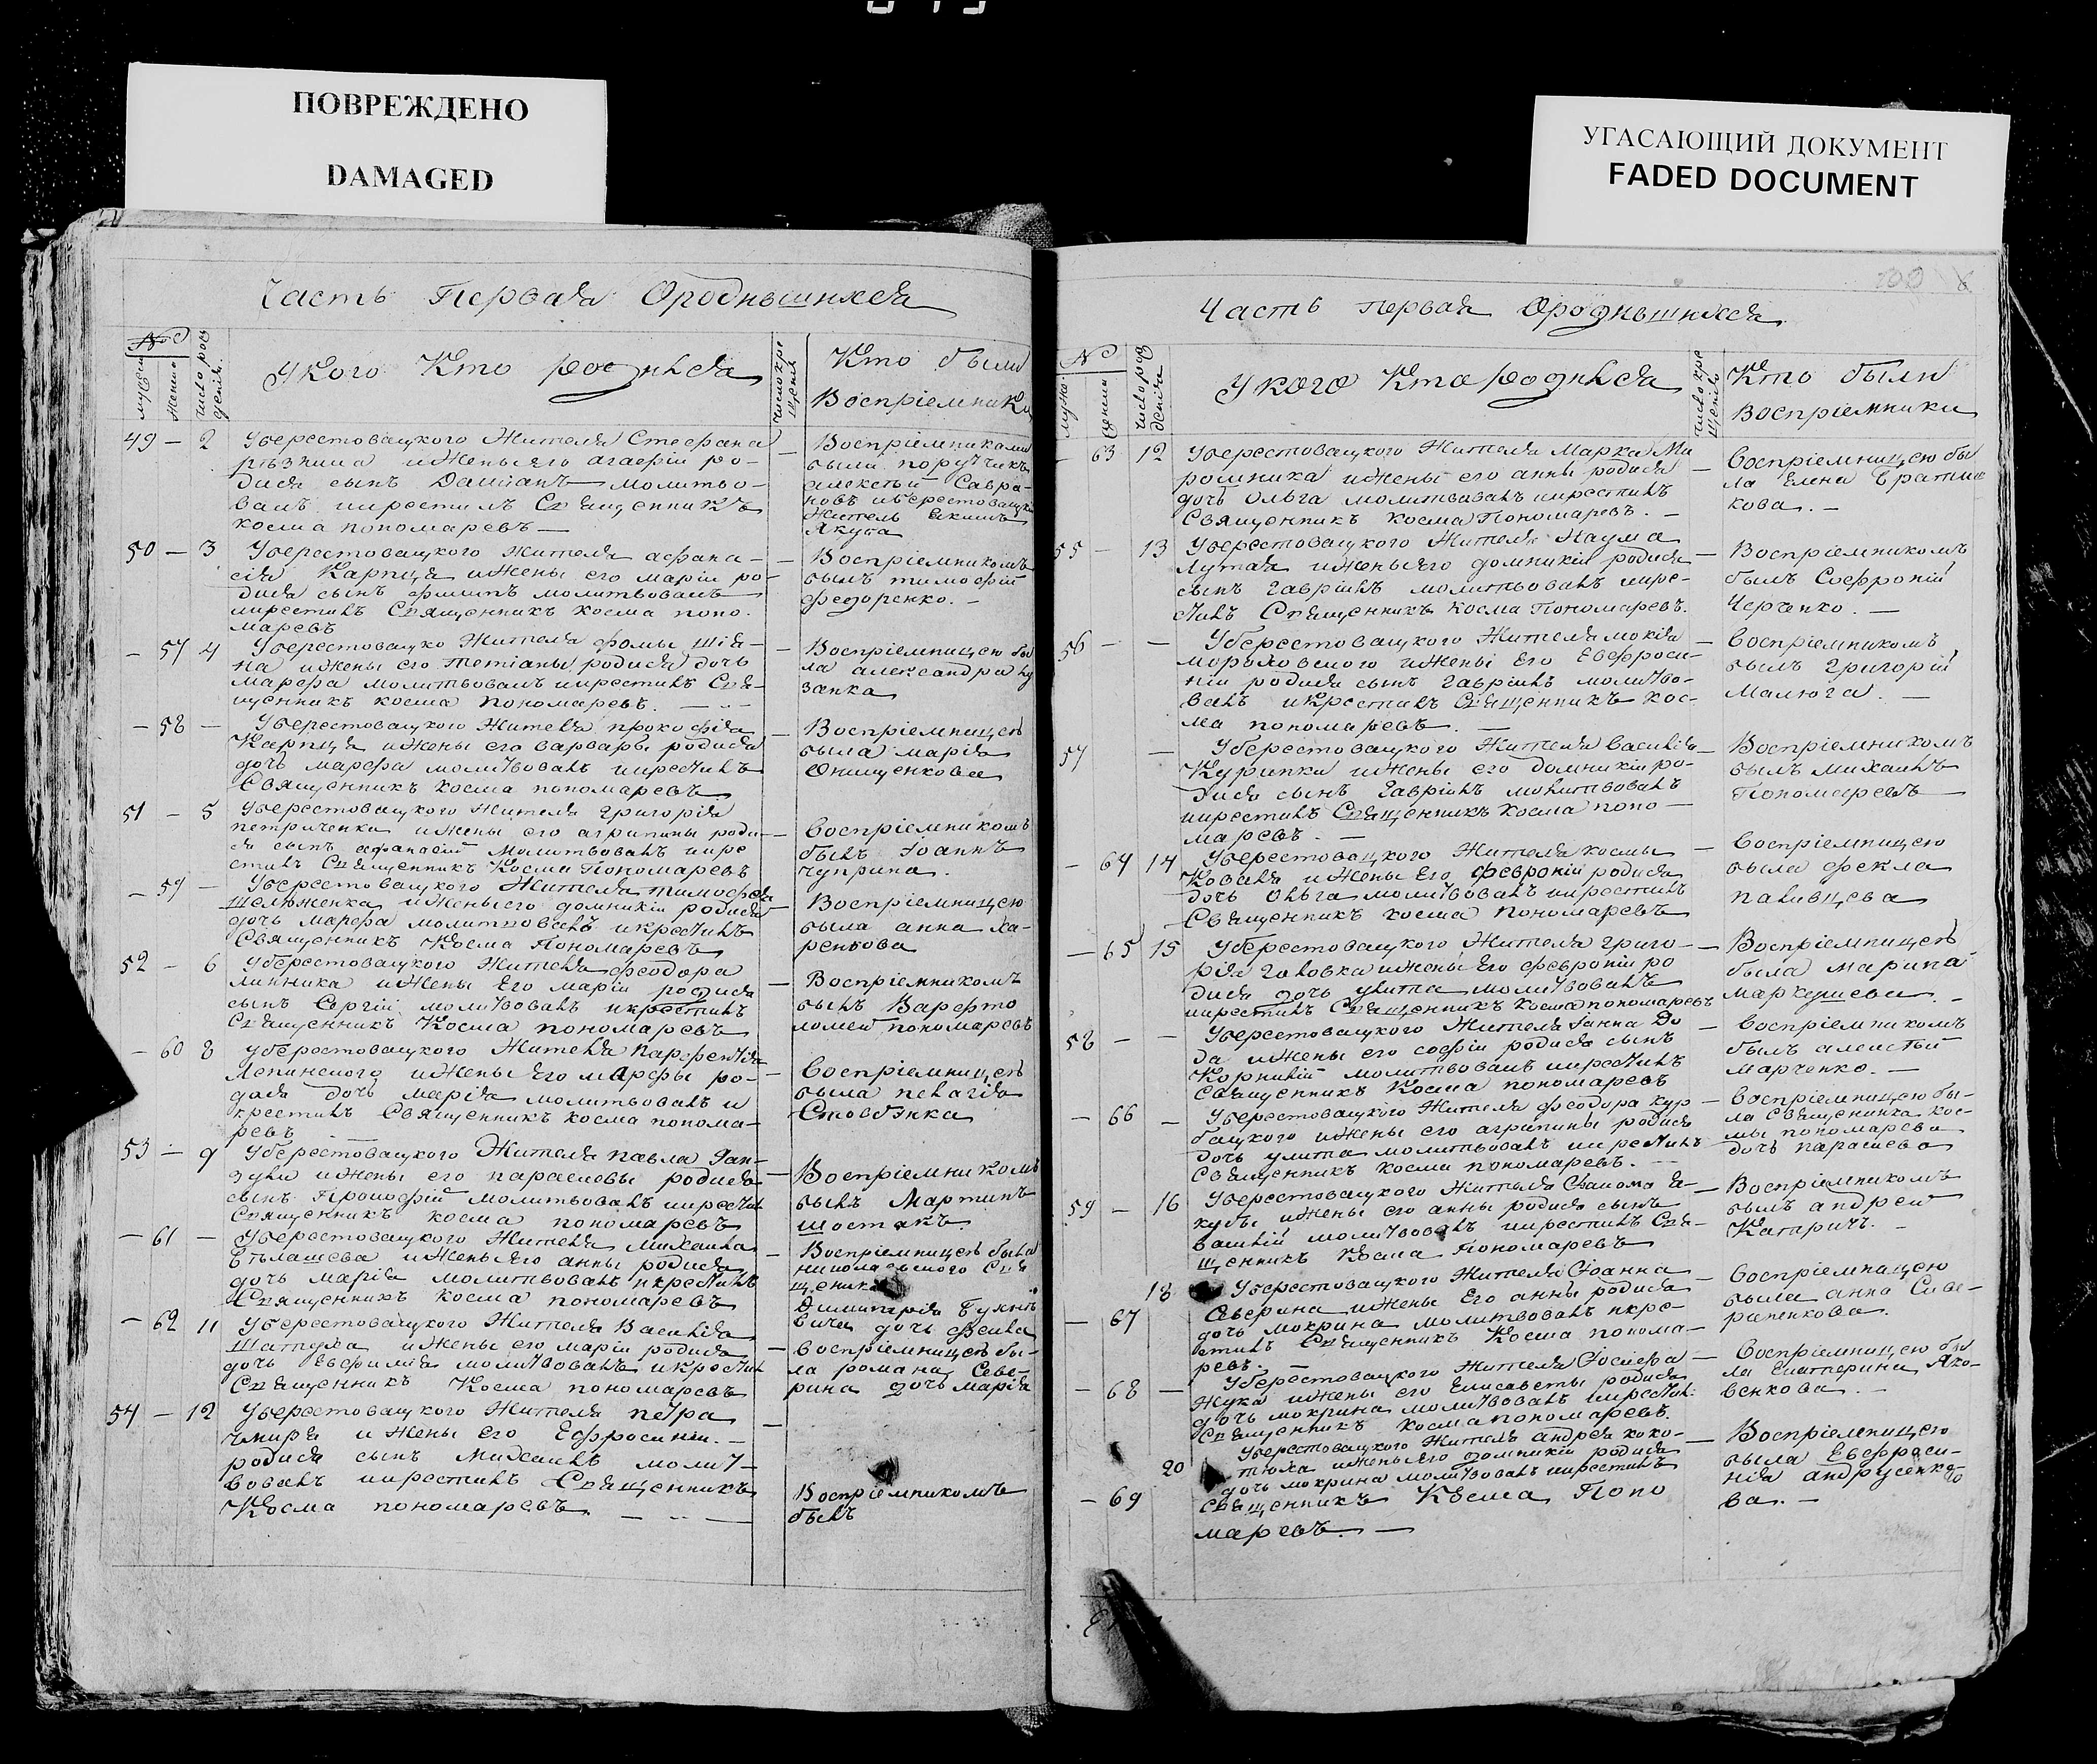 ПОВРЕЖДЕНО
DAMAGED
УГАСАЮЩИЙ ДОКУМЕНТ
FADED DOCUMENT
Часть Первая Ородившихся
№
мужеска
женска
число рождения
У кого Кто родился
число крещения
Кто были
Восприемники
49 – 2 Уберестовацкого Жителя Стефана
рѣзника и Жены его агафiи ро-
дися сынъ Дамианъ молитво-
валъ икрестилъ Священникъ
косма пономаревъ —
Восприемниками
были поручикъ
алексѣй Савра-
новъ иберестовацкий
Житель Якимъ
Якуба
50 – 3 Уберестовацкого Жителя афана-
сiя Карпця иЖены его марiи ро-
дися сынъ филипъ молитвовалъ
икрестилъ Священникъ косма поно-
маревъ
Восприемникомъ
былъ тимофiй
федоренко. –
– 57 4 Уберестовацко Жителя фомы
на иЖены его Татiаны родися дочь
марфа молитвовалъ икрестилъ Свя-
щенникъ косма пономаревъ.
Восприемницею бы
ла александра
занка
– 58 – Уберестовацкого Жителя прокофiя
Карпця иЖены его варвары родися
дочь марфа молитвовалъ икрестилъ
Священникъ косма пономаревъ
Восприемницею
была марiя
Онищенкова
51 – 5 Уберестовацкого Жителя григорiя
петриченка иЖены его агрипины роди-
ся сынъ афанасий молитвовалъ икре
стилъ Священникъ Косма Пономаревъ
Восприемникомъ
былъ Iоаннъ
чуприна.
– 59 – Уберестовацкого Жителя тимофея
иЖены его домникiи родися
дочь марфа молитвовалъ икрестилъ
Священникъ Косма Пономаревъ
Восприемницею
была анна ха-
ренкова
52 – 6 Уберестовацкого Жителя феодора
линника иЖены Его марiи родися
сынъ Сергiй молитвовалъ икрестилъ
Священникъ Косма пономаревъ
Восприемникомъ
былъ Варефто
ломей пономаревъ
– 60 8 Уберестовацкого Жителя Парфентiя
Лепинского иЖены Его марфы ро-
дися дочь марiя молитвовалъ и
крестилъ Священникъ косма понома-
ревъ
Восприемницею
была пелагiя
53 – 9 Уберестовацкого Жителя павла Ган-
зули иЖены его параскевы родися
сынъ Прокофiй молитвовалъ икрестил
Священникъ косма пономаревъ
Восприемникомъ
былъ Мартинъ
шостакъ
– 61 – Уберестовацкого Жителя михаила
Белашева иЖены его анны родися
дочь марiя молитвовалъ икрестилъ
Священникъ косма пономаревъ
Восприемницею была
николаевского Свя
щеника
Димитрiя
вича дочь фекла
– 62 11 Уберестовацкого Жителя Василiя
Шатуха иЖены его марiи родися
дочь Евфимiя молитвовалъ икрестил
Священникъ Косма пономаревъ
восприемницею бы-
ла романа Севе-
рина дочь марiя
54 – 12 Уберестовацкого Жителя петра
чмиря и Жены его Ефросинiи. –
родися сынъ михаилъ молит-
вовалъ икрестилъ Священникъ
Косма пономаревъ
Восприемникомъ
былъ
100
Часть первая Ородившихся
№
число рождения
У кого Кто родился
число крещения
Кто были
Восприемники
– 63 12 Уберестовацкого Жителя Марка Ми
рошника иЖены его анны родися
дочь Ольга молитвовалъ икрестилъ
Священникъ Косма Пономаревъ. –
Восприемницею бы
ла Елена Братчи
кова. –
55 – 13 Уберестовацкого Жителя Наума
Лутая иЖены его домникiи родися
сынъ гаврiилъ молитвовалъ икре-
стилъ Священникъ Косма Пономаревъ.
Восприемникомъ
былъ Софронiй
Черченко. –
56 – – Уберестовацкого Жителя мокiя
мороховского иЖены Его Евфроси-
нiи родися сынъ гаврiилъ молитво-
валъ икрестилъ Священникъ кос-
ма пономаревъ. –
Восприемникомъ
былъ григорiй
Малюга. –
57 – Уберестовацкого Жителя Василiя
Курипки иЖены его домникiи ро-
дися сынъ гаврiилъ молитвовалъ
икрестилъ Священникъ Косма поно-
маревъ. –
Восприемникомъ
былъ михаилъ
Пономаревъ
– 64 14 Уберестовацкого Жителя космы
Коваля иЖены Его февронiи родися
дочь Ольга молитвовалъ икрестилъ
Священникъ косма пономаревъ
Восприемницею
была фекла
паливцева
– 65 15 Уберестовацкого Жителя григо-
рiя головка иЖены Его февронiи ро
дися дочь улита молитвовалъ
икрестилъ Священникъ косма пономаревъ
Восприемницею
была марина
58 – – Уберестовацкого Жителя Ioанна До
да иЖены его софiи родися сынъ
Корнилiй молитвовалъ икрестилъ
священникъ Косма пономаревъ
Восприемникомъ
былъ алексѣй
марченко. –
– 66 – Уберестовацкого Жителя феодора кур-
бацкого иЖены его агрипины родися
дочь улита молитвовалъ икрестилъ
священникъ косма пономаревъ. –
Восприемницею бы-
ла Священника кос-
мы пономарева
дочь парасева
59 – 16 Уберестовацкого Жителя Якима Я-
кубы иЖены его анны родися сынъ
василiй молитвовалъ икрестилъ Свя-
щенникъ Косма Пономаревъ
Восприемникомъ
былъ андрей
Катричъ. –
– 67 18 Уберестовацкого Жителя Iоанна
Северина иЖены Его анны родися
дочь мокрина молитвовалъ икре-
стилъ Священникъ Косма понома-
ревъ. –
Восприемницею
была анна Сиве-
риненкова.
– 68 – Уберестовацкого Жителя Iосифа
Жука иЖены его Елисаветы родися
дочь мокрина молитвовалъ икрестил
Священникъ косма пономаревъ.
Восприемницею бы
ла Екатерина Яко-
венкова. –
– 69 20 Уберестовацкого Жителя андрея коко-
тюха иЖены его домникiи родися
дочь мокрина молитвовалъ икрестилъ
Священникъ Косма Поно
маревъ. –
Восприемницею
была Евфроси-
нiя андрусенко
ва. –